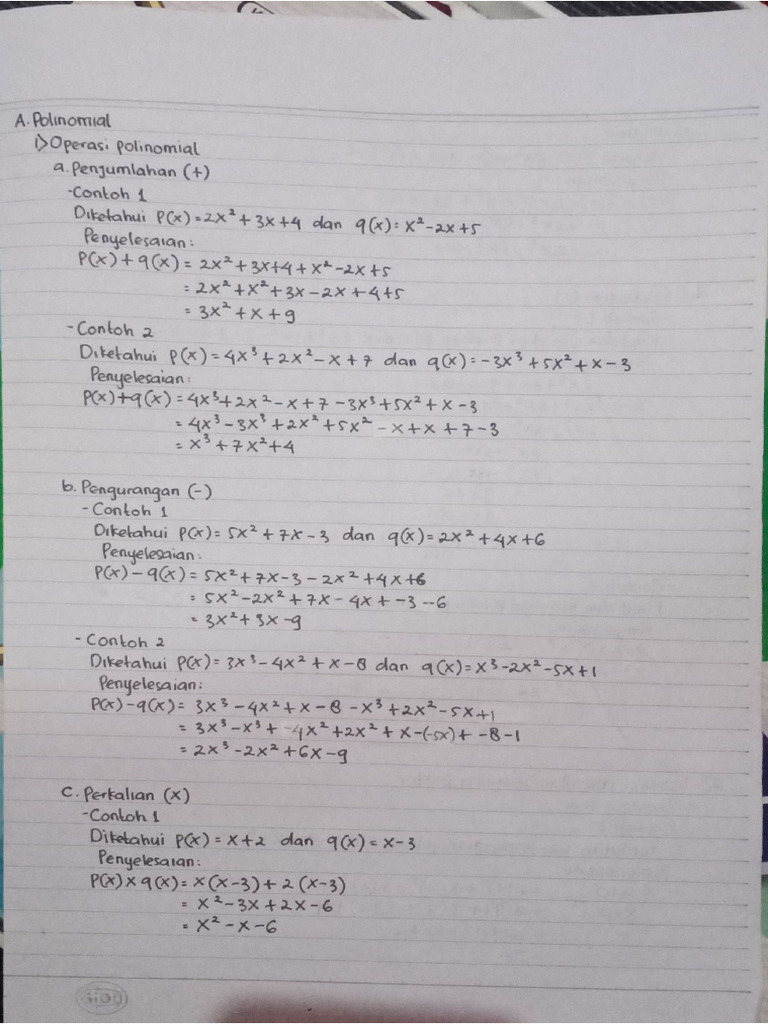 A. Polinomial
1) Operasi polinomial
a. Penjumlahan (+)
- Contoh 1
Diketahui P(x) = 2x² + 3x + 4 dan q(x) = x² - 2x + 5
Penyelesaian :
P(x) + q(x) = 2x² + 3x + 4 + x² - 2x + 5
= 2x² + x² + 3x - 2x + 4 + 5
= 3x² + x + 9
- Contoh 2
Diketahui P(x) = 4x³ + 2x² - x + 7 dan q(x) = -3x³ + 5x² + x - 3
Penyelesaian :
P(x) + q(x) = 4x³ + 2x² - x + 7 - 3x³ + 5x² + x - 3
= 4x³ - 3x³ + 2x² + 5x² - x + x + 7 - 3
= x³ + 7x² + 4
b. Pengurangan (-)
- Contoh 1
Diketahui P(x) = 5x² + 7x - 3 dan q(x) = 2x² + 4x + 6
Penyelesaian :
P(x) - q(x) = 5x² + 7x - 3 - 2x² + 4x + 6
= 5x² - 2x² + 7x - 4x + -3 - -6
= 3x² + 3x - 9
- Contoh 2
Diketahui P(x) = 3x³ - 4x² + x - 8 dan q(x) = x³ - 2x² - 5x + 1
Penyelesaian :
P(x) - q(x) = 3x³ - 4x² + x - 8 - x³ + 2x² - 5x + 1
= 3x³ - x³ + -4x² + 2x² + x - (-5x) + -8 - 1
= 2x³ - 2x² + 6x - 9
C. Perkalian (x)
- Contoh 1
Diketahui P(x) = x + 2 dan q(x) = x - 3
Penyelesaian :
P(x) x q(x) = x (x - 3) + 2 (x - 3)
= x² - 3x + 2x - 6
= x² - x - 6
SIDU